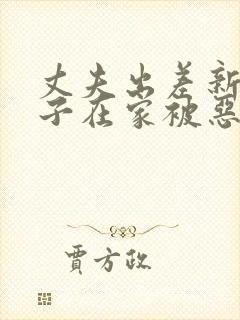 丈夫出差新
子在家被恶
贾方政